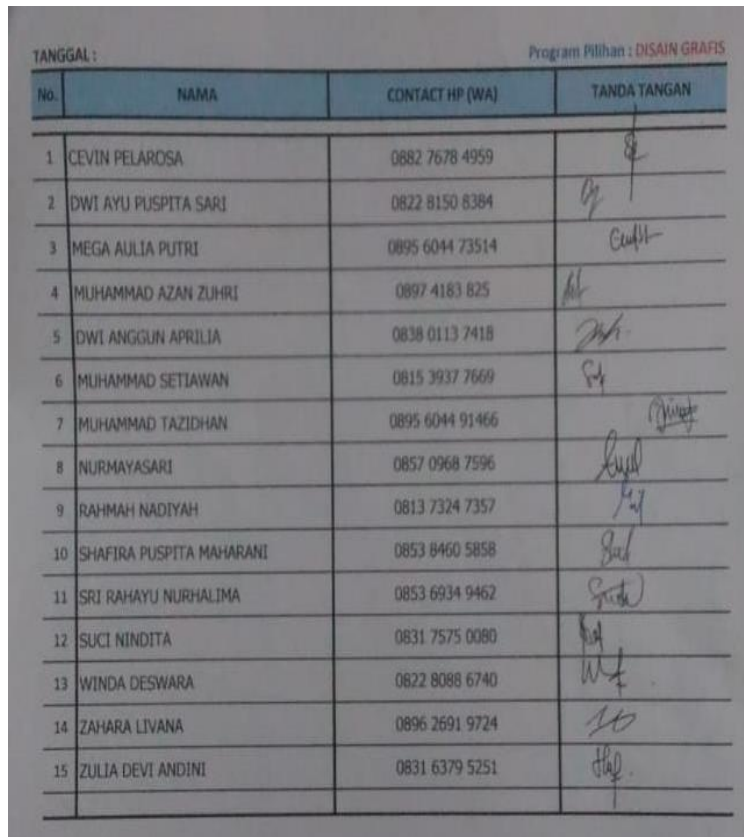 TANGGAL : Program Pilihan : DISAIN GRAFIS
No. NAMA CONTACT HP (WA) TANDA TANGAN
1 CEVIN PELAROSA 0882 7678 4959
2 DWI AYU PUSPITA SARI 0822 8150 8384
3 MEGA AULIA PUTRI 0895 6044 73514
4 MUHAMMAD AZAN ZUHRI 0897 4183 825
5 DWI ANGGUN APRILIA 0838 0113 7418
6 MUHAMMAD SETIAWAN 0815 3937 7669
7 MUHAMMAD TAZIDHAN 0895 6044 91466
8 NURMAYASARI 0857 0968 7596
9 RAHMAH NADIYAH 0813 7324 7357
10 SHAFIRA PUSPITA MAHARANI 0853 8460 5858
11 SRI RAHAYU NURHALIMA 0853 6934 9462
12 SUCI NINDITA 0831 7575 0080
13 WINDA DESWARA 0822 8088 6740
14 ZAHARA LIVANA 0896 2691 9724
15 ZULIA DEVI ANDINI 0831 6379 5251